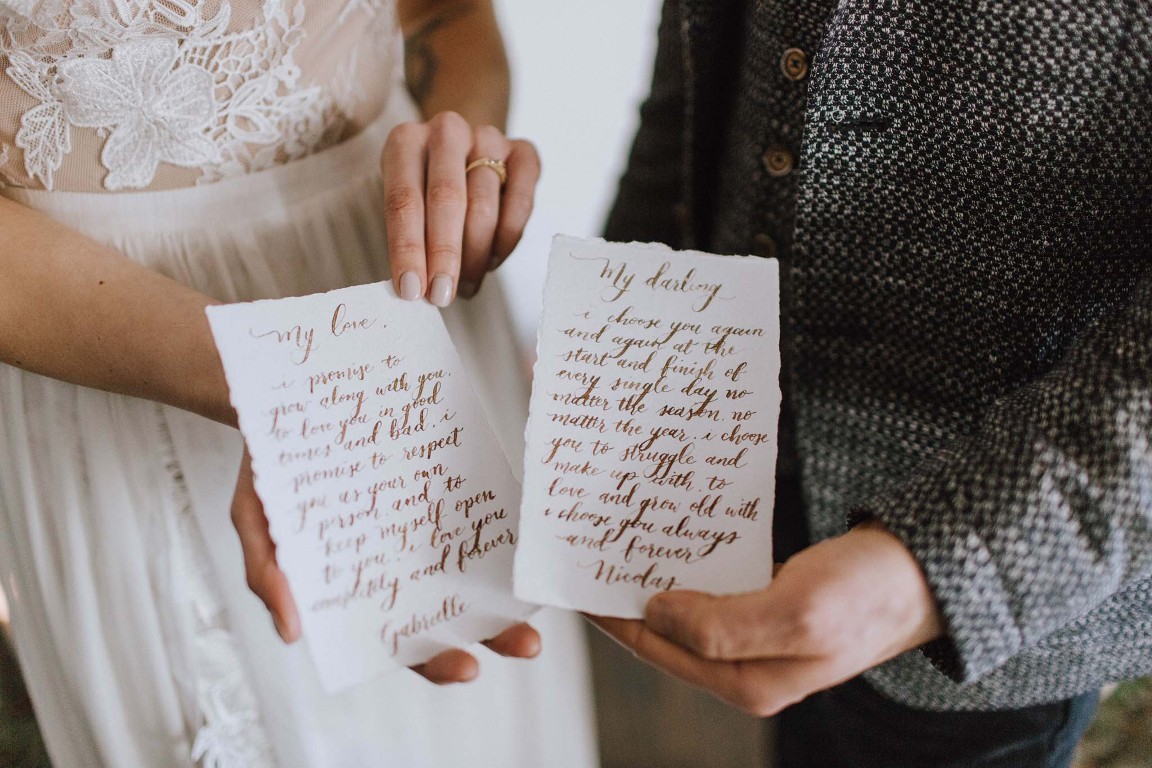 My love,
i promise to
grow along with you,
to love you in good
times and bad. i
promise to respect
you as your own
person. and to
keep myself open
to you. i love you
completely and forever
Gabrielle
My darling
i choose you again
and again at the
start and finish of
every single day no
matter the season. no
matter the year. i choose
you to struggle and
make up with. to
love and grow old with
i choose you always
and forever
Nicolas